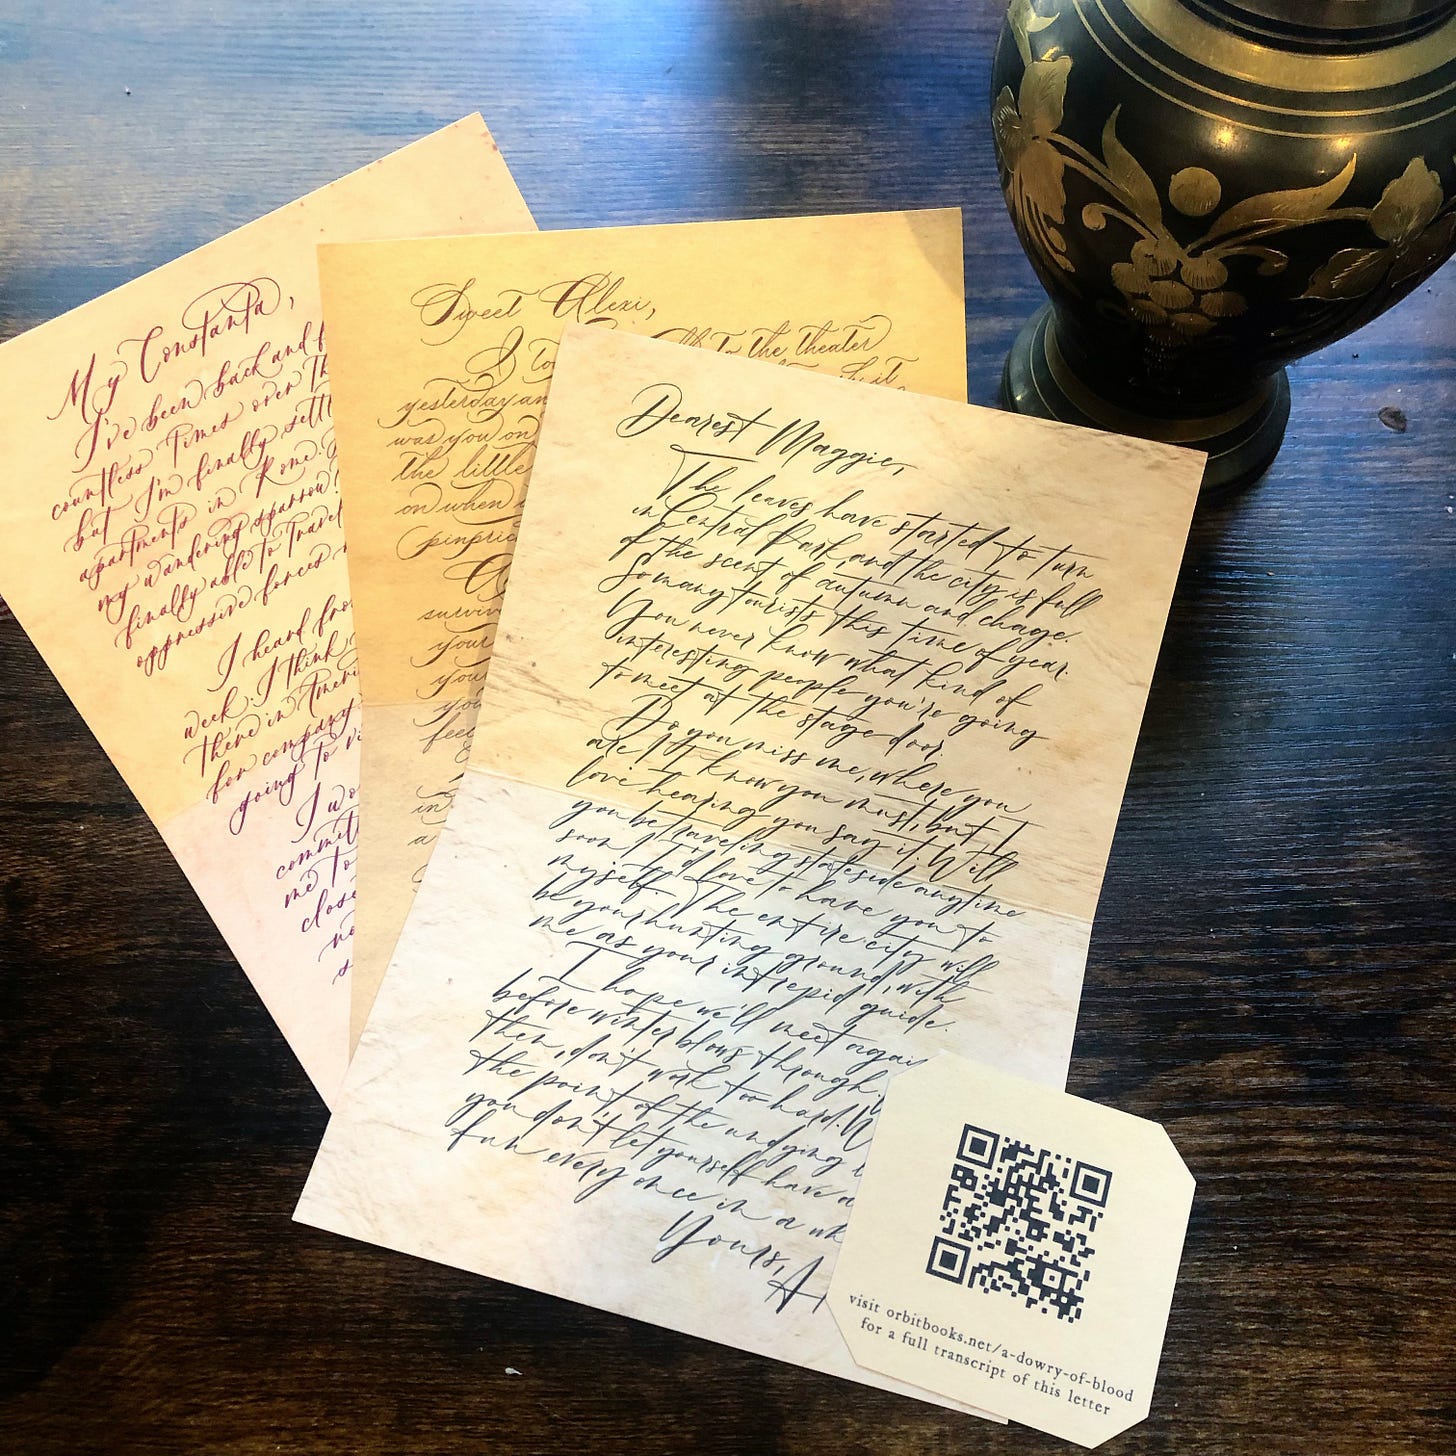 My Constanta,
I've been back and f
countless times over th
but I'm finally settl
apartments in Rome.
my wandering sparrow
finally able to travel
oppressive forces
I heard fro
week. I think
there in Ameri
for company
going to vi
I wo
commit
me to
close
no
s
Sweet Alexi,
I to to the theater
yesterday an
was you on
the little
on when
pinpric
survivi
your
you
you
feel
in
a
Dearest Maggie,
The leaves have started to turn
in Central Park, and the city is full
of the scent of autumn and change.
So many tourists this time of year.
You never know what kind of
interesting people you're going
to meet at the stage door.
Do you miss me, where you
are? I know you must, but I
love hearing you say it. Will
you be traveling stateside anytime
soon? I'd love to have you to
myself. The entire city will
be your hunting ground, with
me as your intrepid guide.
I hope we'll meet again
before winter blows through.
then, don't work too hard. W
the point of the undying l
you don't let yourself have a
fun every once in a wh
Yours, A
visit orbitbooks.net/a-dowry-of-blood
for a full transcript of this letter